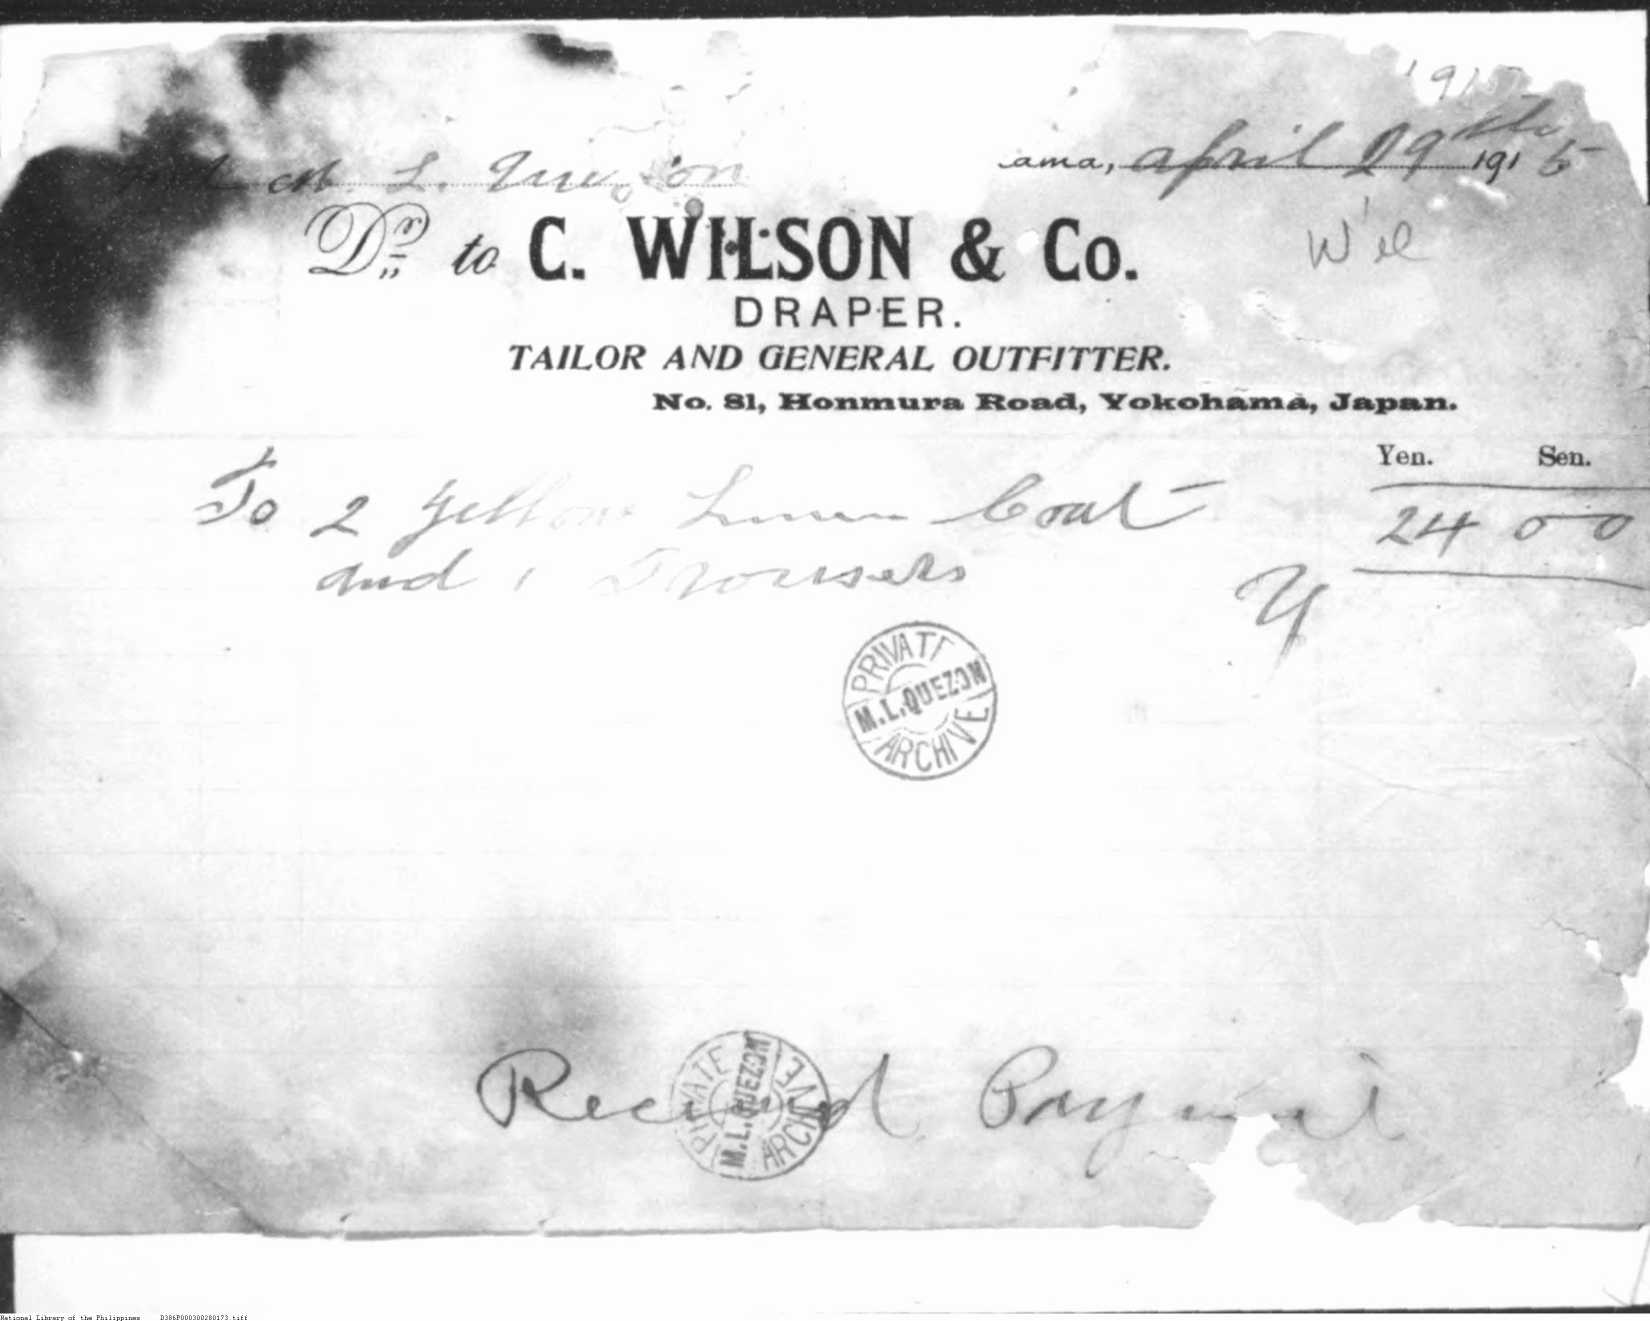 1915
ama, april 29th 1915
L. Quezon
Dr. to C. WILSON & Co.
W'el
DRAPER.
TAILOR AND GENERAL OUTFITTER.
No. 81, Honmura Road, Yokohama, Japan.
Yen. Sen.
To 2 Yellow Linen Coat 24 00
and 1 Trousers
PRIVATE
M.L.QUEZON
ARCHIVE
Received Payment
PRIVATE
M.L.QUEZON
ARCHIVE
National Library of the Philippines D386P000300280173.tiff